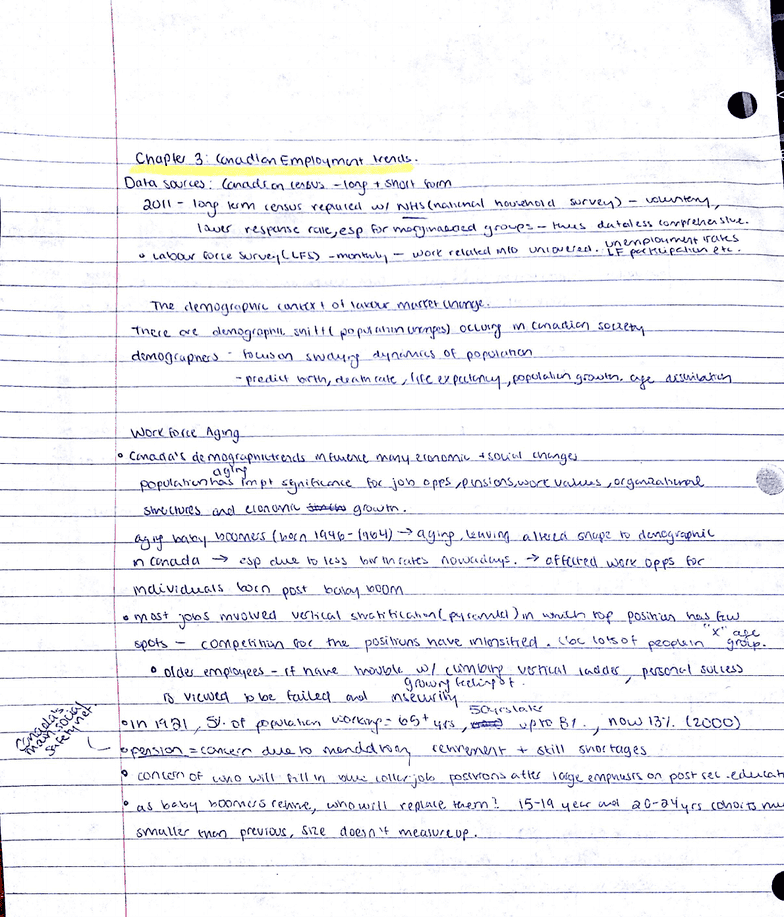 Chapter 3: Canadian Employment trends.
Data sources: Canadian census - long + short form
2011 - long term census replaced w/ NHS (national household survey) - voluntary,
lower response rate, esp for marginalized groups - thus data less comprehensive.
• Labour Force Survey (LFS) - monthly - work related info uncovered. unemployment rates
LF participation etc.
The demographic context of labour market change.
There are demographic shifts (population changes) occuring in Canadian society
demographers - focus on studying dynamics of population
- predict birth, death rate, life expectancy, population growth, age distribution
Work Force Aging
• Canada's demographic trends influence many economic + social changes
aging
population has impt significance for job opps, pensions, work values, organizational
structures and economic growth.
aging baby boomers (born 1946-1964) → aging, leaving altered shape to demographic
in Canada → esp due to less birth rates nowadays. → affected work opps for
individuals born post baby boom
• most jobs involved vertical stratification (pyramid) in which top position has few
spots - competition for the positions have intensified. Coz lots of people in "x" age
group.
• older employees - if have trouble w/ climbing vertical ladder, personal success
is viewed to be failed and growing feeling of insecurity
• In 1921, 5% of population working = 65+ yrs, 50 yrs later up to 8%, now 13% (2000)
Canada's
main social
safety net
• pension = concern due to mandatory retirement + skill shortages
• concern of who will fill in blue collar job positions after large emphasis on post sec. educat
• as baby boomers retire, who will replace them? 15-19 year and 20-24 yrs cohorts mu
smaller than previous, size doesn't measure up.